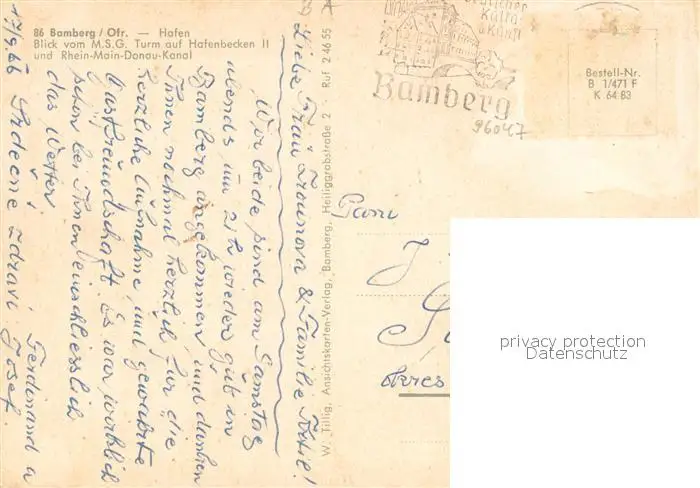 86 Bamberg / Ofr. — Hafen
Blick vom M.S.G. Turm auf Hafenbecken II
und Rhein-Main-Donau-Kanal
Bamberg
96047
Bestell-Nr.
B 1/471 F
K 64 83
W. Tillig, Ansichtskarten-Verlag, Bamberg, Heiliggrabstraße 2 · Ruf 2 46 55
Liebe Frau & Familie
Wir beide sind am Samstag
abends um 21h wieder gut in
Bamberg angekommen und danken
Ihnen nochmal herzlich für die
herzliche Aufnahme und gewährte
Gastfreundschaft. Es war wirklich
schön bei Ihnen einschliesslich
das Wetter
Srdečné zdraví
Ferdinand u
Josef.
Paní
privacy protection
Datenschutz